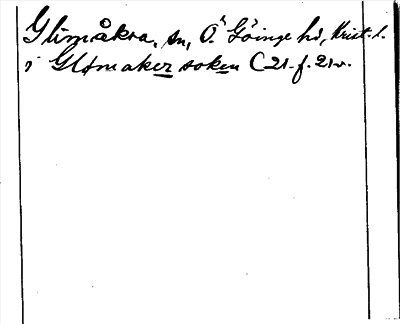 Glimåkra, sn, Ö. Göinge hd, Krist. l.
i Glimaker soken C 21. f. 21v.